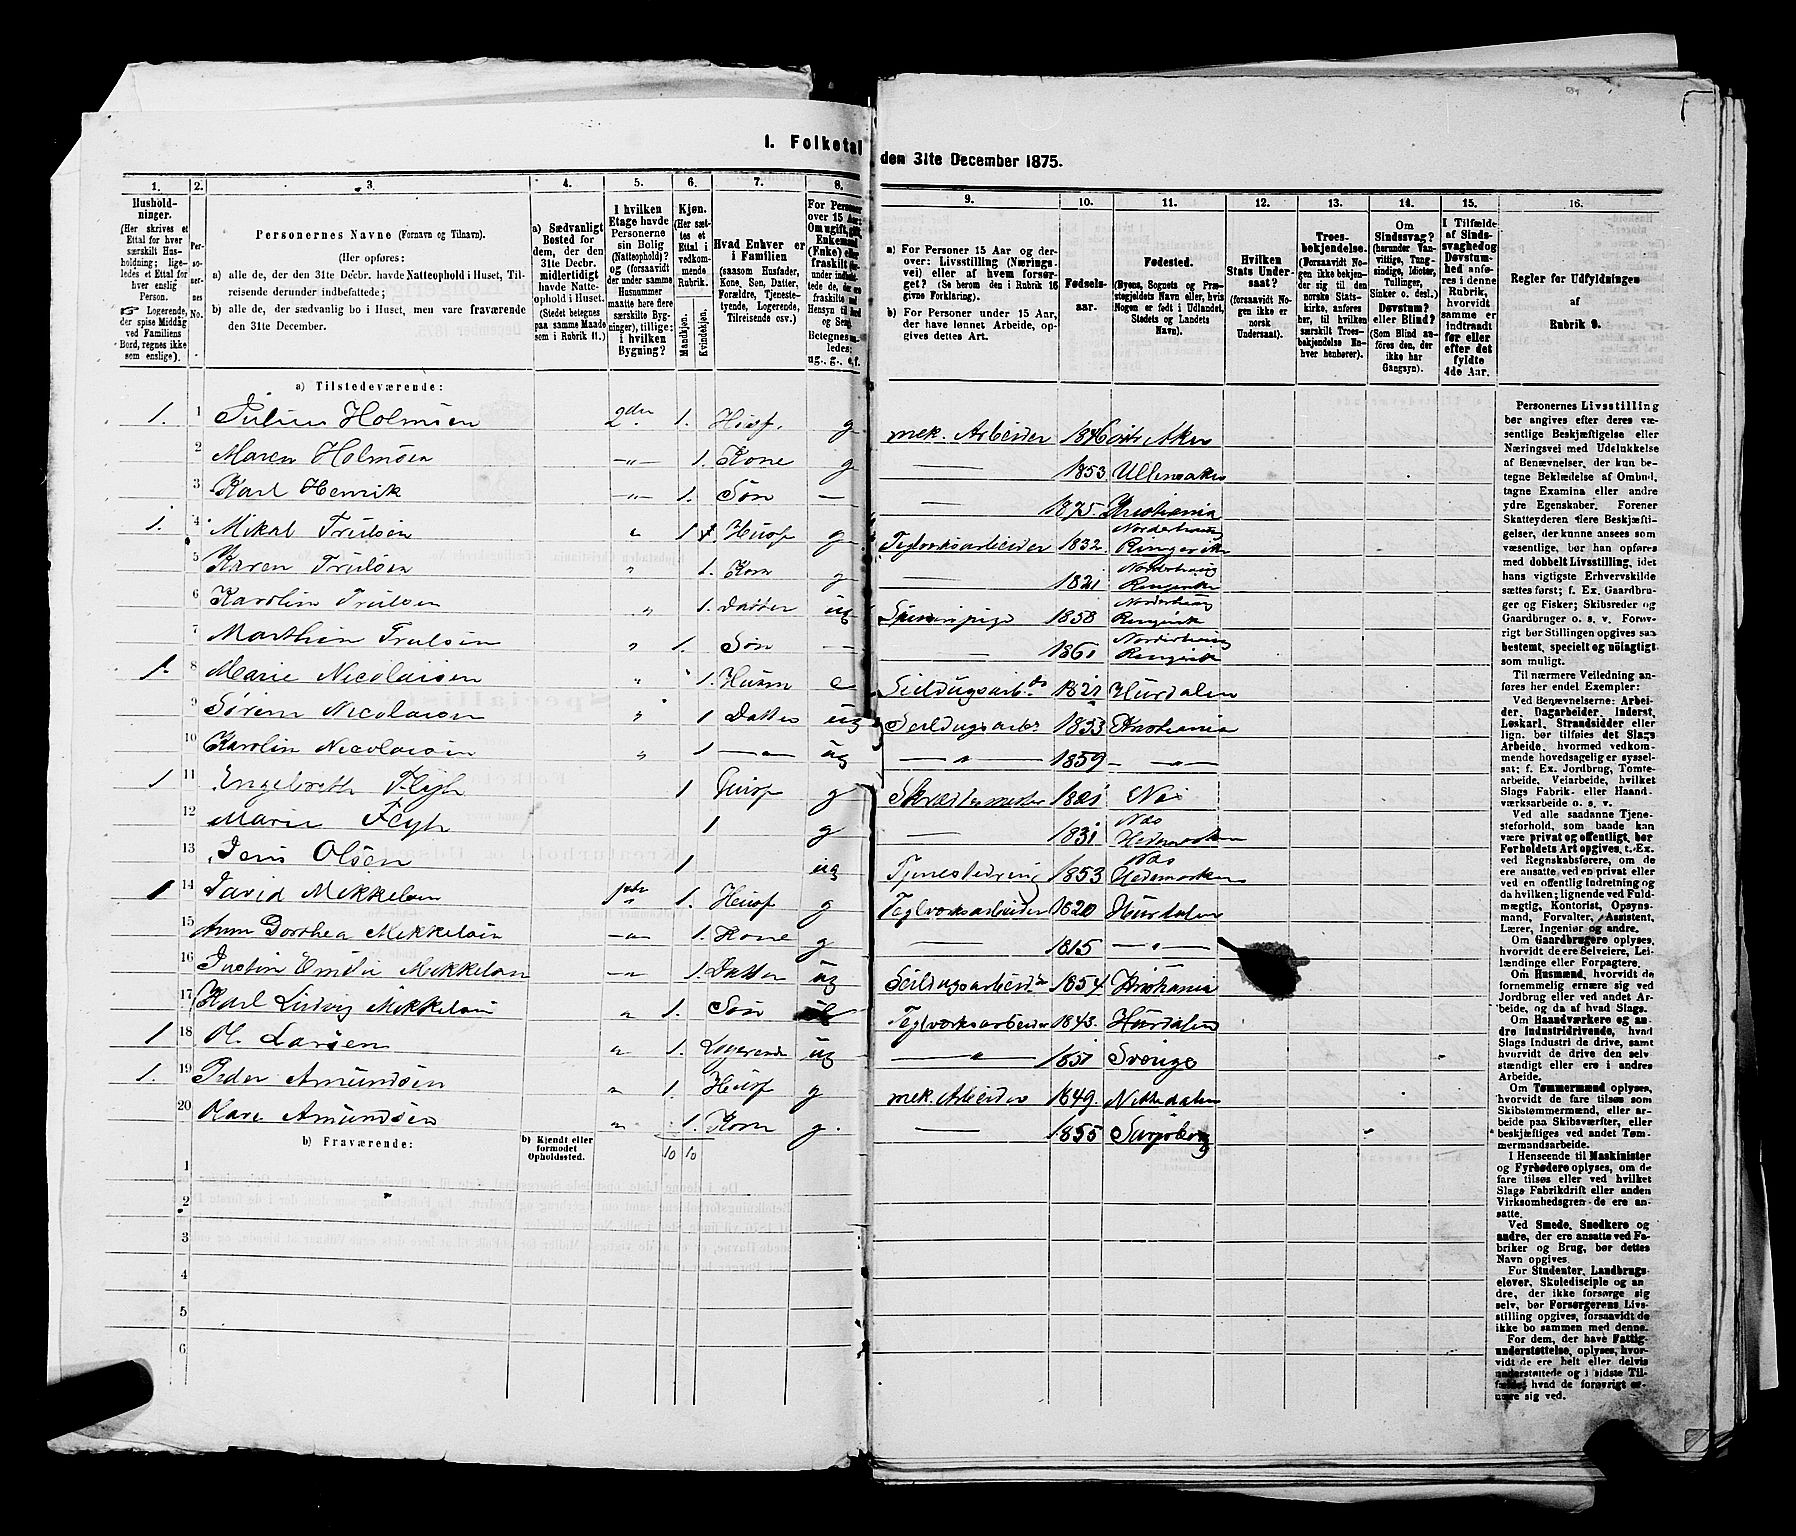 1. Folketal den 31te December 1875.
1. 2. 3. 4. 5. 6. 7. 8. 9. 10. 11. 12. 13. 14. 15. 16.
Husholdninger.
(Her skrives et Ettal for hver særskilt Husholdning; ligeledes et Ettal for hver enslig Person.
☞ Logerende, der spise Middag ved Familiens Bord, regnes ikke som enslige).
Personernes No.
Personernes Navne (Fornavn og Tilnavn).
(Her opføres:
a) alle de, der den 31te Decbr. havde Natteophold i Huset, Tilreisende derunder indbefattede;
b) alle de, der sædvanlig bo i Huset, men vare fraværende den 31te December.
a) Sædvanligt Bosted for dem, der den 31te Decbr. midlertidigt havde Natteophold i Huset. (Stedet betegnes paa samme Maade som i Rubrik 11.)
I hvilken Etage havde Personerne sin Bolig (Natteophold)? og (forsaavidt der under samme Husnummer maatte høre flere særskilte Bygninger), tillige: i hvilken Bygning?
Kjøn. (Her sættes et Ettal i vedkommende Rubrik.
Mandkjøn. Kvindekjøn.
Hvad Enhver er i Familien
(saasom Husfader, Kone, Søn, Datter, Forældre, Tjenestetyende, Logerende, Tilreisende osv.)
For Personer over 15 Aar: Om ugift, gift, Enkemand (Enke) eller fraskilt
a) For Personer 15 Aar og derover: Livsstilling (Næringsvei) eller af hvem forsørget? (Se herom den i Rubrik 16 givne Forklaring).
b) For Personer under 15 Aar, der have lønnet Arbeide, opgives dettes Art.
Fødselsaar.
Fødested.
(Byens, Sognets og Præstegjeldets Navn eller, hvis Nogen er født i Udlandet, Stedets og Landets Navn).
Hvilken Stats Undersaat?
(forsaavidt Nogen ikke er norsk Undersaat).
Troesbekjendelse.
(Forsaavidt Nogen ikke bekjender sig til den norske Statskirke, anføres her, til hvilken særskilt Troesbekjendelse Enhver henhører).
Om Sindssvag? (herunder Vanvittige, Tungsindige, Idioter, Tullinger, Sinker o. desl.) Døvstum? eller Blind? (Som Blind anføres den, der ikke har Gangsyn).
I Tilfælde af Sindssvaghed og Døvstumhed anføres i denne Rubrik, hvorvidt samme er indtraadt før eller efter det fyldte 4de Aar.
Regler for Udfyldningen af Rubrik 9.
a) Tilstedeværende:
1. 1 Julius Holmsen 2den 1. Husf. g mek. Arbeider 1846 Aker
2 Maren Holmsen —"— 1. Kone g — 1853 Ullensaker
3 Karl Henrik —"— 1. Søn — — 1875. Kristiania
1. 4 Mikal Trulsen " 1 Husf g Teglverksarbeider 1832. Norderhoug Ringerike
5 Karen Trulsen " 1. Kone g — 1821 Norderhoug Ringerike
6 Karolin Trulsen " 1. Datter ug Spinnepige 1858 Norderhoug Ringerik
7 Marthin Trulsen " 1. Søn — — 1861 Norderhoug Ringerik
1. 8 Marie Nicolaisen " 1. Husm e Seildugsarb. 1821 Hurdalen
9 Sørine Nicolaisen " 1 Datter ug Seildugsarb. 1853 Kristiania
10 Karolin Nicolaisen " 1 —"— ug —"— 1859 —"—
1 11 Engebreth Fleyh 1 Husf g Skræddermester 1821 Næs
12 Marie Fleyh 1 g — 1831 Næs Hedemarken
13 Jens Olsen 1 ug Tjenestedreng 1853 Næs Hedemarken
1 14 David Mikkelsen 1ste 1. Husf g Teglverksarbeider 1820 Hurdalen
15 Ann Dorthea Mikkelsen —"— 1. Kone g — 1815 —"—
16 Justin Emilie Mikkelsen —" 1. Datter ug Seildugsarbeid. 1854. Kristiania
17 Karl Ludvig Mikkelsen " 1. Søn Teglverksarbeider 1843. Hurdalen
1 18 O. Larsen " 1. Logerende ug —"— 1851 Sverige
1. 19 Peder Amundsen " 1. Husf g mek. Arbeider 1849. Nittedalen
20 Kare Amundsen " 1. Kone g. — 1855 Sarpsborg
10 10
b) Fraværende:
b) Kjendt eller formodet Opholdssted.
1
2
3
4
5
6
Personernes Livsstilling
bør angives efter deres væ-
sentlige Beskjæftigelse eller
Næringsvei med Udelukkelse
af Benævnelser, der kun be-
tegne Beklædelse af Ombud,
tagne Examina eller andre
ydre Egenskaber. Forener
Skatteyderen flere Beskjæfti-
gelser, der kunne ansees som
væsentlige, bør han opføres
med dobbelt Livsstilling, idet
hans vigtigste Erhvervskilde
sættes først; f. Ex. Gaardbru-
ger og Fisker; Skibsreder og
Gaardbruger o. s. v. Forøv-
rigt bør Stillingen opgives saa
bestemt, specielt og nøiagtigt
som muligt.
Til nærmere Veiledning an-
føres her endel Exempler:
Ved Benævnelserne: Arbei-
der, Dagarbeider, Inderst,
Løskarl, Strandsidder eller
lign. bør tilføies det Slags
Arbeide, hvormed vedkom-
mende hovedsagelig er syssel-
sat; f. Ex. Jordbrug, Tomte-
arbeide, Veiarbeide, hvilket
Slags Fabrik- eller Haand-
værksarbeide o. s. v.
Ved alle saadanne Tjene-
steforhold, som baade kan
være privat og offentligt, bør
Forholdets Art opgives, t. Ex.
ved Regnskabsførere, om de
ere ansatte ved en privat eller
ved en offentlig Indretning og
da hvilken; lignende ved Fuld-
mægtig, Kontorist, Opsyns-
mand, Forvalter, Assistent,
Lærer, Ingeniør og andre.
Om Gaardbrugere oplyses,
hvorvidt de ere Selveiere, Lei-
lændinge eller Forpagtere.
Om Husmænd, hvorvidt de
fornemmelig ernære sig ved
Jordbrug eller ved andet Ar-
beide, og da af hvad Slags.
Om Haandværkere og an-
dre Industridrivende, hvad
Slags Industri de drive, samt
hvorvidt de drive den selv-
stændigt eller ere i andres
Arbeide.
Om Tømmermænd oplyses,
hvorvidt de fare tilsøs som
Skibstømmermænd, eller ar-
beide paa Skibsværfter, eller
beskjæftiges ved andet Tøm-
mermandsarbeide.
I Henseende til Maskinister
og Fyrbødere oplyses, om de
fare tilsøs eller ved hvilket
Slags Fabrikdrift eller anden
Virksomhedsgren de ere an-
satte.
Ved Smede, Snedkere og
andre, der ere ansatte ved Fa-
briker og Brug, bør dettes
Navn opgives.
For Studenter, Landbrugs-
elever, Skoledisciple og an-
dre, der ikke forsørge sig
selv, bør Forsørgerens Livs-
stilling opgives, forsaavidt de
ikke bo sammen med denne.
For dem, der have Fattig-
understøttelse, oplyses, hvor-
vidt de ere helt eller delvis
understøttede og i sidste Til-
fælde, hvad de forøvrigt er-
nære sig ved.